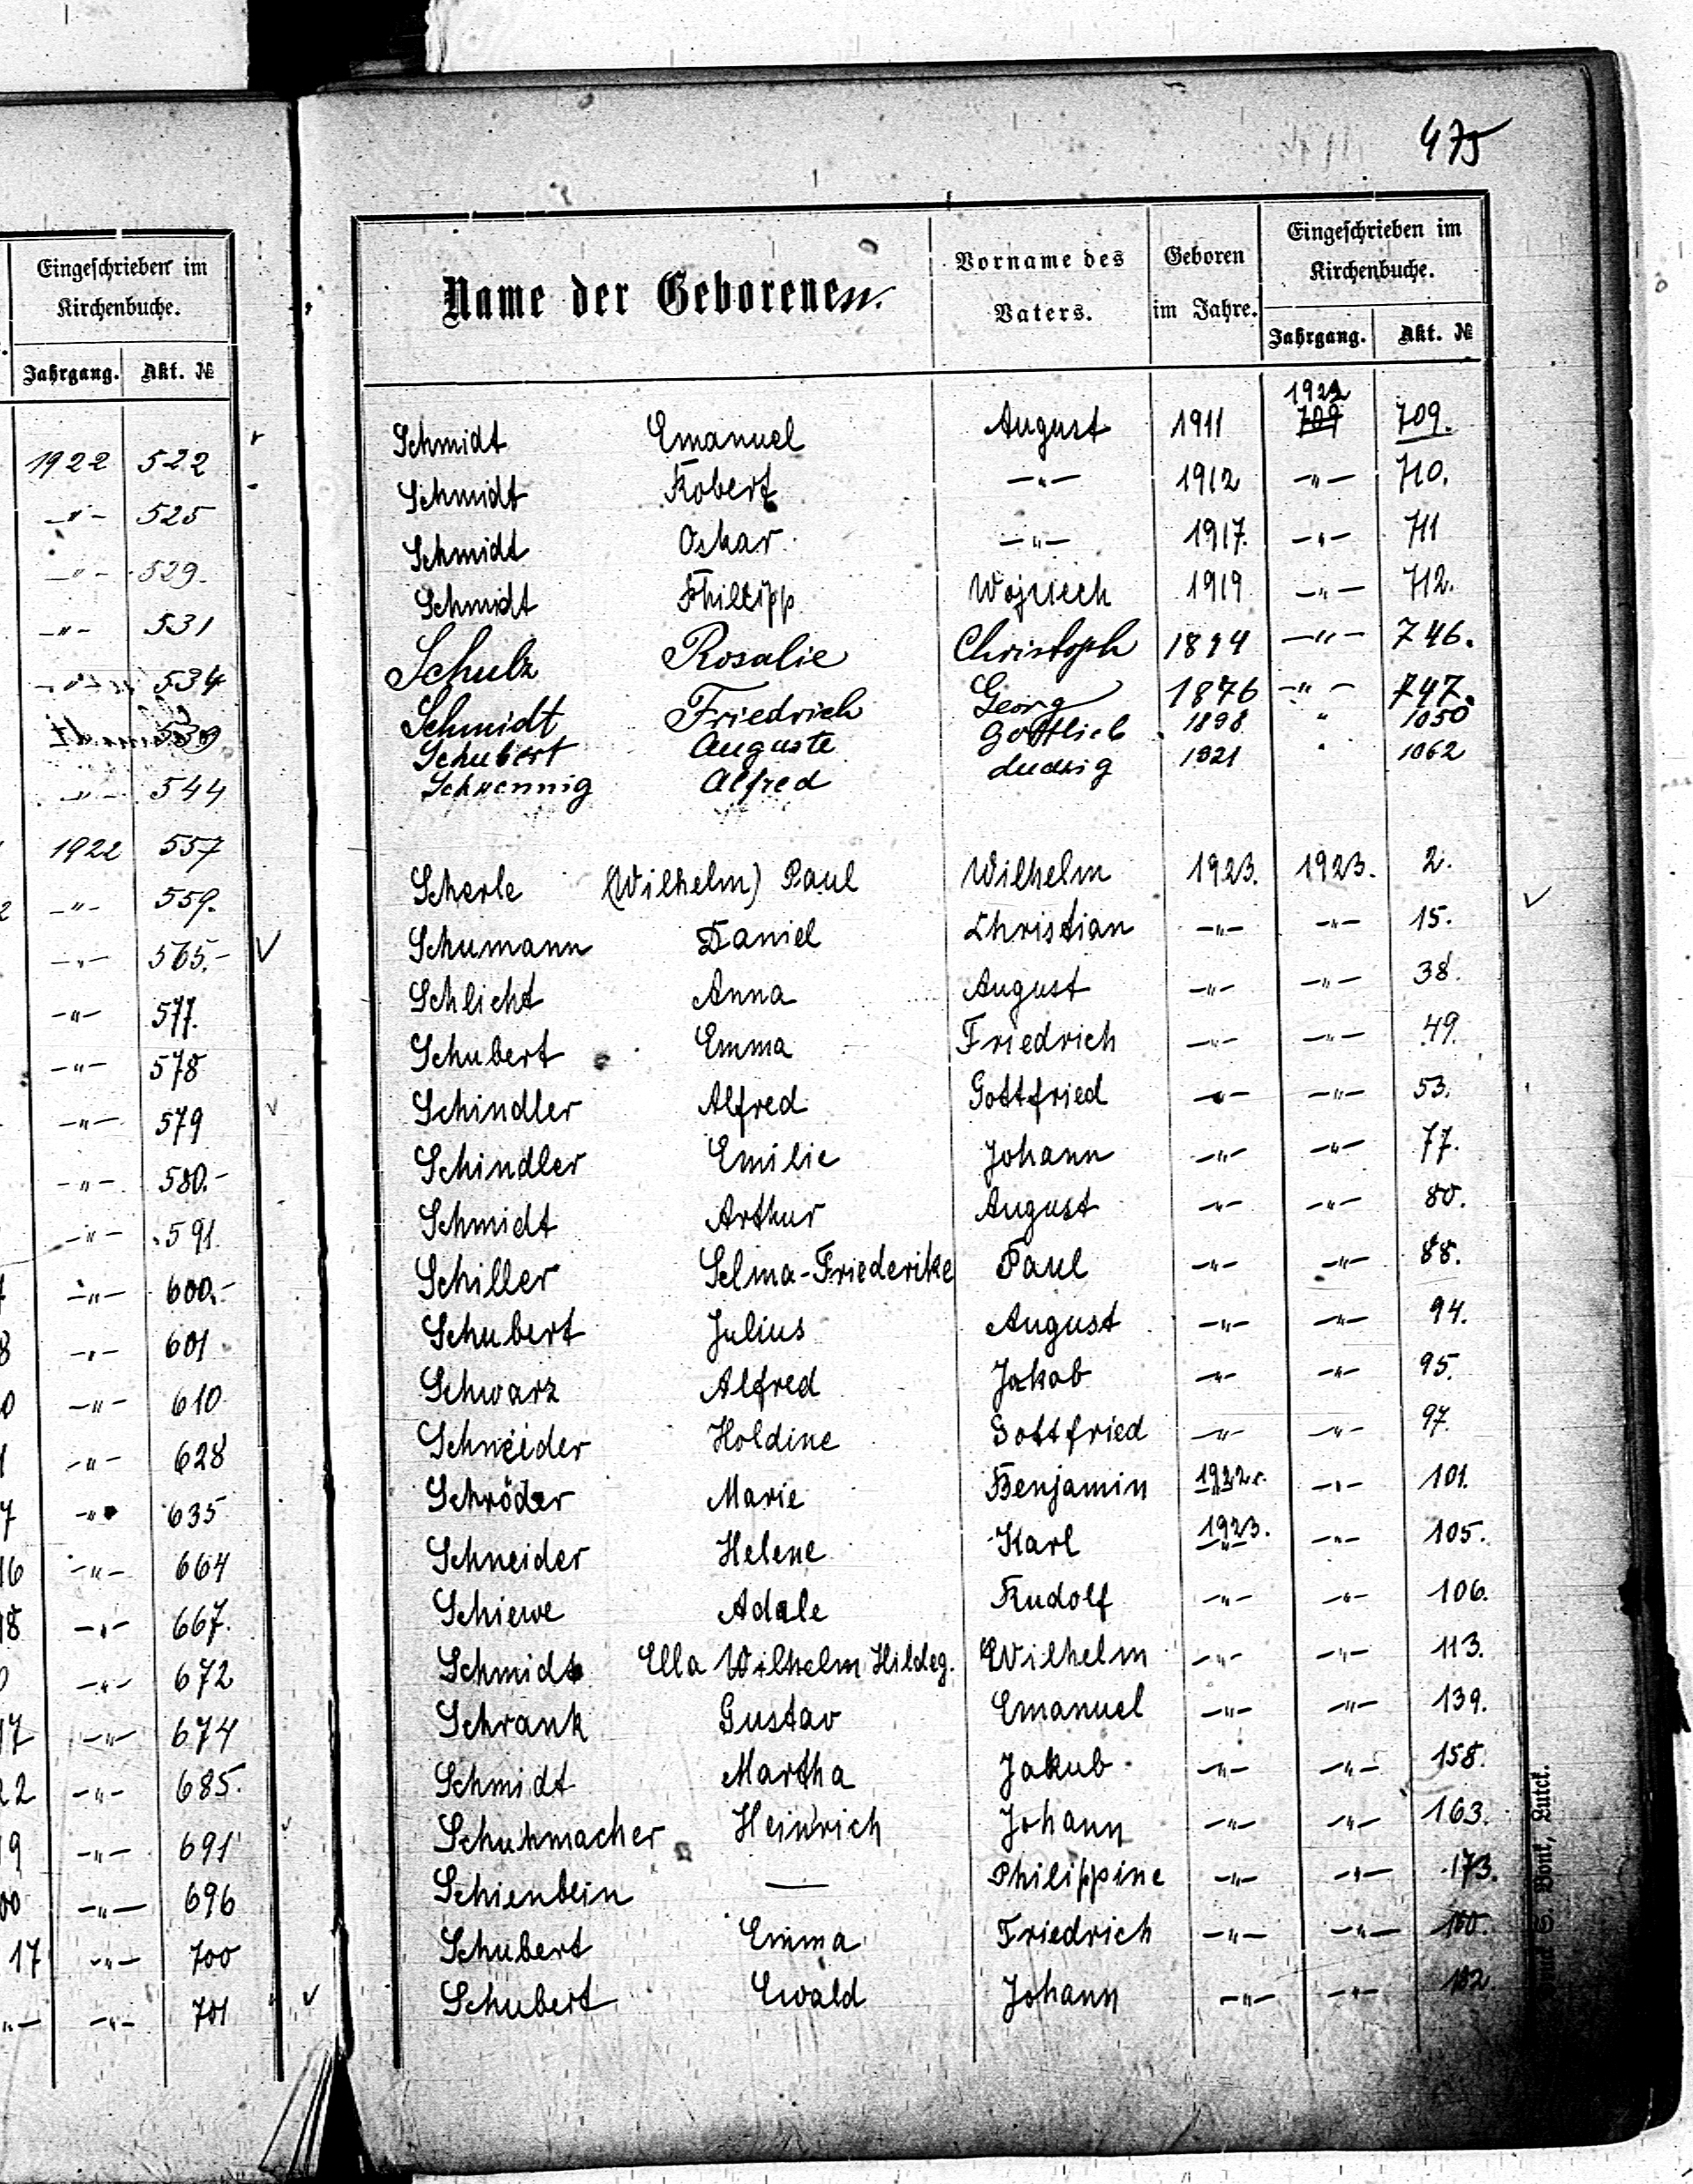 Eingeschrieben im
Kirchenbuche.
Jahrgang. Akt. №
1922 522
-"- 525
-"- 529.
-"- 531
-"- 534
539
-"- 544
1922 557
-"- 559.
-"- 565.-
-"- 577.
-"- 578
-"- 579
-"- 580.-
-"- 591.
-"- 600.-
-"- 601
-"- 610
-"- 628
-"- 635
16 -"- 664
18 -"- 667.
-"- 672
17 -"- 674
22 -"- 685.
19 -"- 691
00 -"- 696
17 -"- 700
-"- -"- 701
475
Name der Geborenen. Vorname des Vaters. Geboren im Jahre. Eingeschrieben im Kirchenbuche.
Jahrgang. Akt. №
Schmidt Emanuel August 1911 1922 709 709.
Schmidt Robert -"- 1912 -"- 710.
Schmidt Oskar -"- 1917. -"- 711
Schmidt Philipp Wojciech 1919 -"- 712.
Schulz Rosalie Christoph 1894 -"- 746.
Schmidt Friedrich Georg 1876 -"- 747.
Schubert Auguste Gottlieb 1898 " 1050
Schwennig Alfred Ludwig 1921 " 1062
Scherle (Wilhelm) Paul Wilhelm 1923. 1923. 2.
Schumann Daniel Christian -"- -"- 15.
Schlicht Anna August -"- -"- 38.
Schubert Emma Friedrich -"- -"- 49.
Schindler Alfred Gottfried -"- -"- 53.
Schindler Emilie Johann -"- -"- 77.
Schmidt Arthur August -"- -"- 80.
Schiller Selma-Friederike Paul -"- -"- 88.
Schubert Julius August -"- -"- 94.
Schwarz Alfred Jakob -"- -"- 95.
Schneider Holdine Gottfried -"- -"- 97.
Schröder Marie Benjamin 1922 r. -"- 101.
Schneider Helene Karl 1923. -"- 105.
Schiewe Adele Rudolf -"- -"- 106.
Schmidt Ella Wilhelm Hildeg. Wilhelm -"- -"- 113.
Schrank Gustav Emanuel -"- -"- 139.
Schmidt Martha Jakub -"- -"- 158.
Schuhmacher Heinrich Johann -"- -"- 163.
Schienbein — Philippine -"- -"- 173.
Schubert Emma Friedrich -"- -"- 180.
Schubert Ewald Johann -"- -"- 182.
Bonk, Luck.